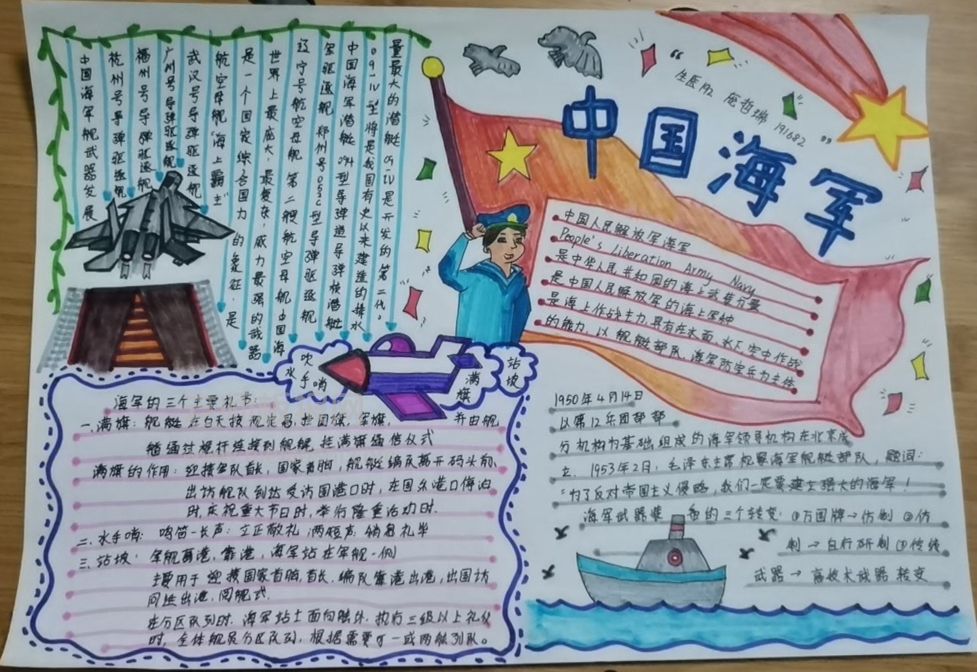 中国海军
191682
中国人民解放军海军
People's Liberation Army Navy
是中华人民共和国的海上武装力量
是中国人民解放军的海上军种
是海上作战主力,具有在水面、水下、空中作战
的能力。以舰艇部队、海军防空兵为主体
中国海军舰艇武器发展
杭州号导弹驱逐舰
福州号导弹驱逐舰
广州号导弹驱逐舰
武汉号导弹驱逐舰
航空母舰"海上霸主"
是一个国家综合国力的象征,是
世界上最庞大、最复杂、威力最强的武器
辽宁号航空母舰 第二艘航空母舰 中国海
军驱逐舰 郑州号052C型导弹驱逐舰
中国海军潜艇 094型导弹核潜艇
09-IV型将是我国有史以来建造的排水
量最大的潜艇 09-IV是开发的第二代。
吹
水手哨
满旗
站坡
海军的三个主要礼节:
一、满旗:舰艇在白天按规定悬挂国旗,军旗, 并由舰
艏通过桅杆连接到舰艉,挂满旗通信仪式
满旗的作用:迎接军队首长,国家首脑,舰艇编队离开码头前、
出访舰队到达受访国港口时,在国外港口停泊
时,庆祝重大节日时,举行隆重活动时.
二、水手哨:鸣笛一长声:立正敬礼;两短声:稍息礼毕
三、站坡:军舰离港、靠港,海军站在军舰一侧
主要用于迎接国家首脑,首长、编队靠港出港,出国访
问进出港,阅舰式.
在分区队列时,海军站立面向舷外,执行三级以上礼仪
时,全体舰员分区队列,根据需要可一或两舷列队。
1950年4月14日
以第12兵团部部
分机构为基础组成的海军领导机构在北京成
立。1953年2月,毛泽东主席视察海军舰艇部队,题词:
"为了反对帝国主义侵略,我们一定要建立强大的海军!
海军武器装备的三个转变:①万国牌→仿制 ②仿
制→自行研制 ③传统
武器→高技术武器 转变